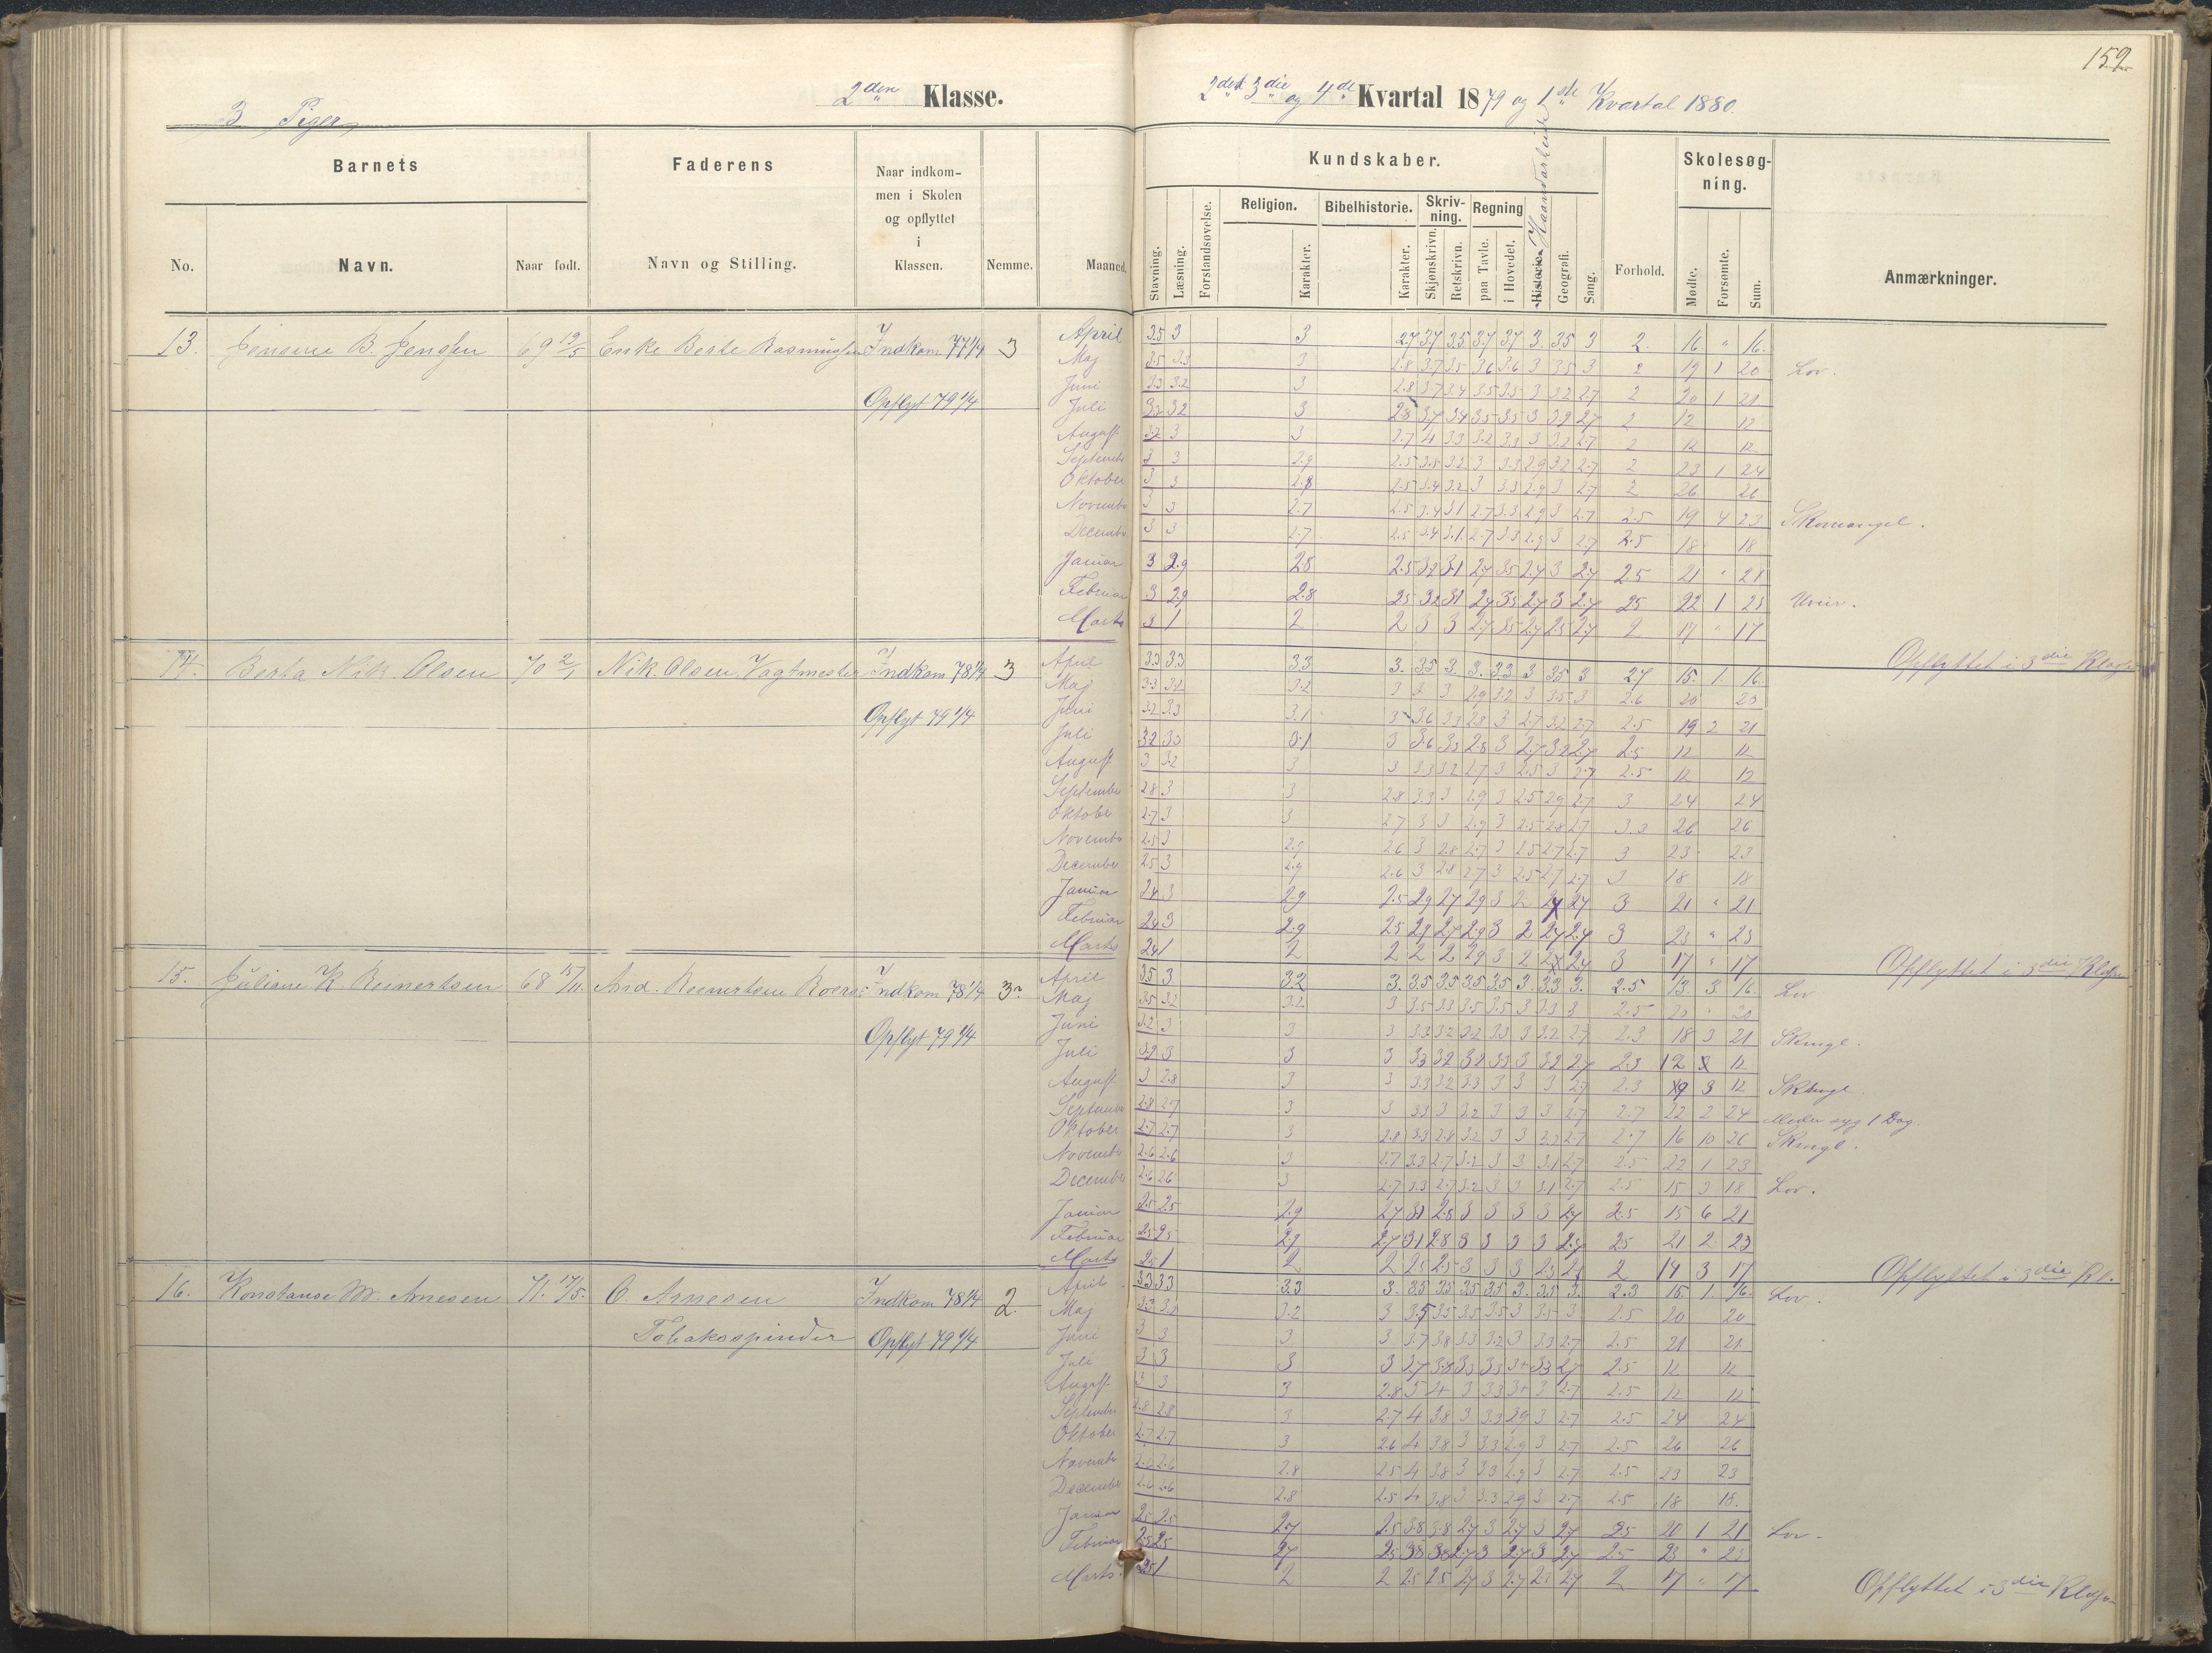 159
3 Piger
2den Klasse.
2det 3die og 4de Kvartal 1879 og 1ste Kvartal 1880.
Barnets
Faderens
Naar indkom-
men i Skolen
og opflyttet
i
Klassen.
No.
Navn.
Naar født.
Navn og Stilling.
Nemme.
Maaned.
Kundskaber.
Stavning.
Læsning.
Forstandsøvelse.
Religion.
Karakter.
Bibelhistorie.
Karakter.
Skriv-
ning.
Skjønskrivn.
Retskrivn.
Regning
paa Tavle.
i Hovedet.
Historie.
Haandarbeide
Geografi.
Sang.
Forhold.
Skolesøg-
ning.
Mødte.
Forsømte.
Sum.
Anmærkninger.
13. Jensine B. Jensen 69 19/5 Enke Berte Rasmussen Indkom 77 1/4 3
Opflyt 79 1/4
April 3.5 3 3 2.7 3.7 3.5 3.7 3.7 3. 3.5 3 2. 16. " 16.
Maj 3.5 3.3 3 2.8 3.7 3.5 3.6 3.6 3 3.5 3 2 19 1 20 Lov.
Juni 3.3 3.2 3 2.8 3.7 3.4 3.5 3.5 3 3.2 2.7 2 20 1 21
Juli 3.2 3.2 3 2.8 3.7 3.4 3.5 3.5 3 3.2 2.7 2 12 12
August 3.2 3 3 2.7 4 3.3 3.2 3.3 3 3.2 2.7 2 12 12
September 3 3 2.9 2.5 3.5 3.2 3 3.3 2.9 3.2 2.7 2 23 1 24
Oktober 3 3 2.8 2.5 3.4 3.2 3 3.3 2.9 3 2.7 2 26 26
November 3 3 2.7 2.5 3.4 3.1 2.7 3.3 2.9 3 2.7 2.5 19 4 23 Skomangel.
December 3 3 2.7 2.5 3.4 3.1 2.7 3.3 2.9 3 2.7 2.5 18 18
Januar 3 2.9 2.8 2.5 3.2 3.1 2.7 3.5 2.7 3 2.7 2.5 21 " 21
Februar 3 2.9 2.8 2.5 3.2 3.1 2.7 3.5 2.7 3 2.7 2.5 22 1 23 Uveir.
Marts 3 1 2 2 3 3 2.7 3.5 2.7 2.5 2.7 2 17 " 17
Opflyttet i 3die Klasse
14. Berta Nik. Olsen 70 2/1 Nik. Olsen, Vagtmester Indkom 78 1/4 3
Opflyt 79 1/4
April 3.3 3.3 3.3 3. 3.5 3. 3. 3.3 3 3.5 3 2.7 15. 1. 16.
Maj 3.3 3.2 3.2 3 3 3 2.9 3.2 3 3.5 3 2.6 20 20
Juni 3.2 3.3 3.1 3 3.6 3.3 2.8 3 2.7 3.2 2.7 2.5 19 2 21
Juli 3.2 3.3 3.1 3 3.6 3.3 2.8 3 2.7 3.2 2.7 2.5 12 12
August 3 3.2 3 3 3.3 3.2 2.7 3 2.5 3 2.7 2.5 12 12
September 2.8 3 3 2.8 3.3 3 2.9 3 2.5 2.9 2.7 3 24 24
Oktober 2.7 3 3 2.7 3 3 2.9 3 2.5 2.8 2.7 3.3 26 26
November 2.5 3 2.9 2.6 3 2.8 2.7 3 2.5 2.7 2.7 3 23 23
December 2.5 3 2.9 2.6 3 2.8 2.7 3 2.5 2.7 2.7 3 18 18
Januar 2.4 3 2.9 2.5 2.9 2.7 2.9 3 2 2.7 2.7 3 21 " 21
Februar 2.4 3 2.9 2.5 2.9 2.7 2.9 3 2 2.7 2.7 3 23 " 23
Marts 2.4 1 2 2 2 2 2.9 3 2 2.7 3 17 " 17
Opflyttet i 3die Klasse
15. Juliane K. Reinertsen 68 15/11. And. Reinertsen Indkom 78 1/4 3
Opflyt 79 1/4
April 3.5 3 3.2 3. 3.5 3.5 3.5 3.5 3. 3.3 3. 2.5 13. 3. 16. Lov
Maj 3.5 3.2 3.2 3 3.5 3.3 3.5 3.5 3 3.3 3 2.5 20 " 20
Juni 3.2 3 3 3 3.3 3.2 3.2 3.3 3 3.2 2.7 2.3 18 3 21 Skmgl.
Juli 3.2 3 3 3 3.3 3.2 3.2 3.3 3 3.2 2.7 2.3 12 12
August 3 2.8 3 3 3.3 3.2 3.3 3 3 3 2.7 2.3 9 3 12
September 2.8 2.7 3 3 3.3 3 3.2 3 3 3 2.7 2.7 22 2 24 Moder syg 1 Dag.
Oktober 2.7 2.7 3 2.8 3.3 2.8 3.2 3 3 3.2 2.7 2.7 16 10 26 Skmgl.
November 2.6 2.6 3 2.7 3.3 2.7 3.2 3 3 3.1 2.7 2.5 22 1 23
December 2.6 2.6 3 2.7 3.3 2.7 3.2 3 3 3.1 2.7 2.5 15 3 18 Lov.
Januar 2.5 2.5 2.9 2.7 3.1 2.8 3 3 3 3 2.7 2.5 15 6 21
Februar 2.5 2.5 2.9 2.7 3.1 2.8 3 3 3 3 2.7 2.5 21 2 23
Marts 2.5 1 2 2 2.5 2.5 3 3 3 2.5 2.7 2 14 3 17
Opflyttet i 3die Kl.
16. Konstanse M. Arnesen 71. 17/5. O. Arnesen Indkom 78 1/4 2.
Tobaksspinder Opflyt 79 1/4
April 3.3 3.3 3.3 3. 3.5 3.5 3.5 3.5 3. 3.5 3. 2.3 15. 1. 16. Lov.
Maj 3.3 3.2 3.2 3 3.5 3.5 3.5 3.5 3 3.5 3 2.5 20 20
Juni 3 3 3 3 3.7 3.8 3.3 3.2 3 3.3 2.7 2.5 21 21
Juli 3 3 3 3 3.7 3.8 3.3 3.3 3+ 3.3 2.7 2.5 12 12
August 3 3 3 2.8 3 4 3 3.3 3+ 3 2.7 2.5 12 12
September 2.8 2.8 3 2.7 4 3.8 3 3.3 2.9 3 2.7 2.5 24 24
Oktober 2.7 2.7 3 2.6 4 3.8 3 3.3 2.9 3 2.7 2.5 26 26
November 2.6 2.6 2.8 2.5 4 3.8 3 3.3 2.9 3 2.7 2.5 23 23
December 2.6 2.6 2.8 2.5 4 3.8 3 3.3 2.9 3 2.7 2.5 18 18.
Januar 2.5 2.5 2.7 2.5 3.8 3.8 2.7 3 2.7 3 2.7 2.5 20 1 21 Lov.
Februar 2.5 2.5 2.7 2.5 3.8 3.8 2.7 3 2.7 3 2.7 2.5 23 " 23
Marts 2.5 1 2 2 2.5 2.5 2.7 3 2.7 2.5 2.7 2 17 " 17
Opflyttet i 3die Klasse